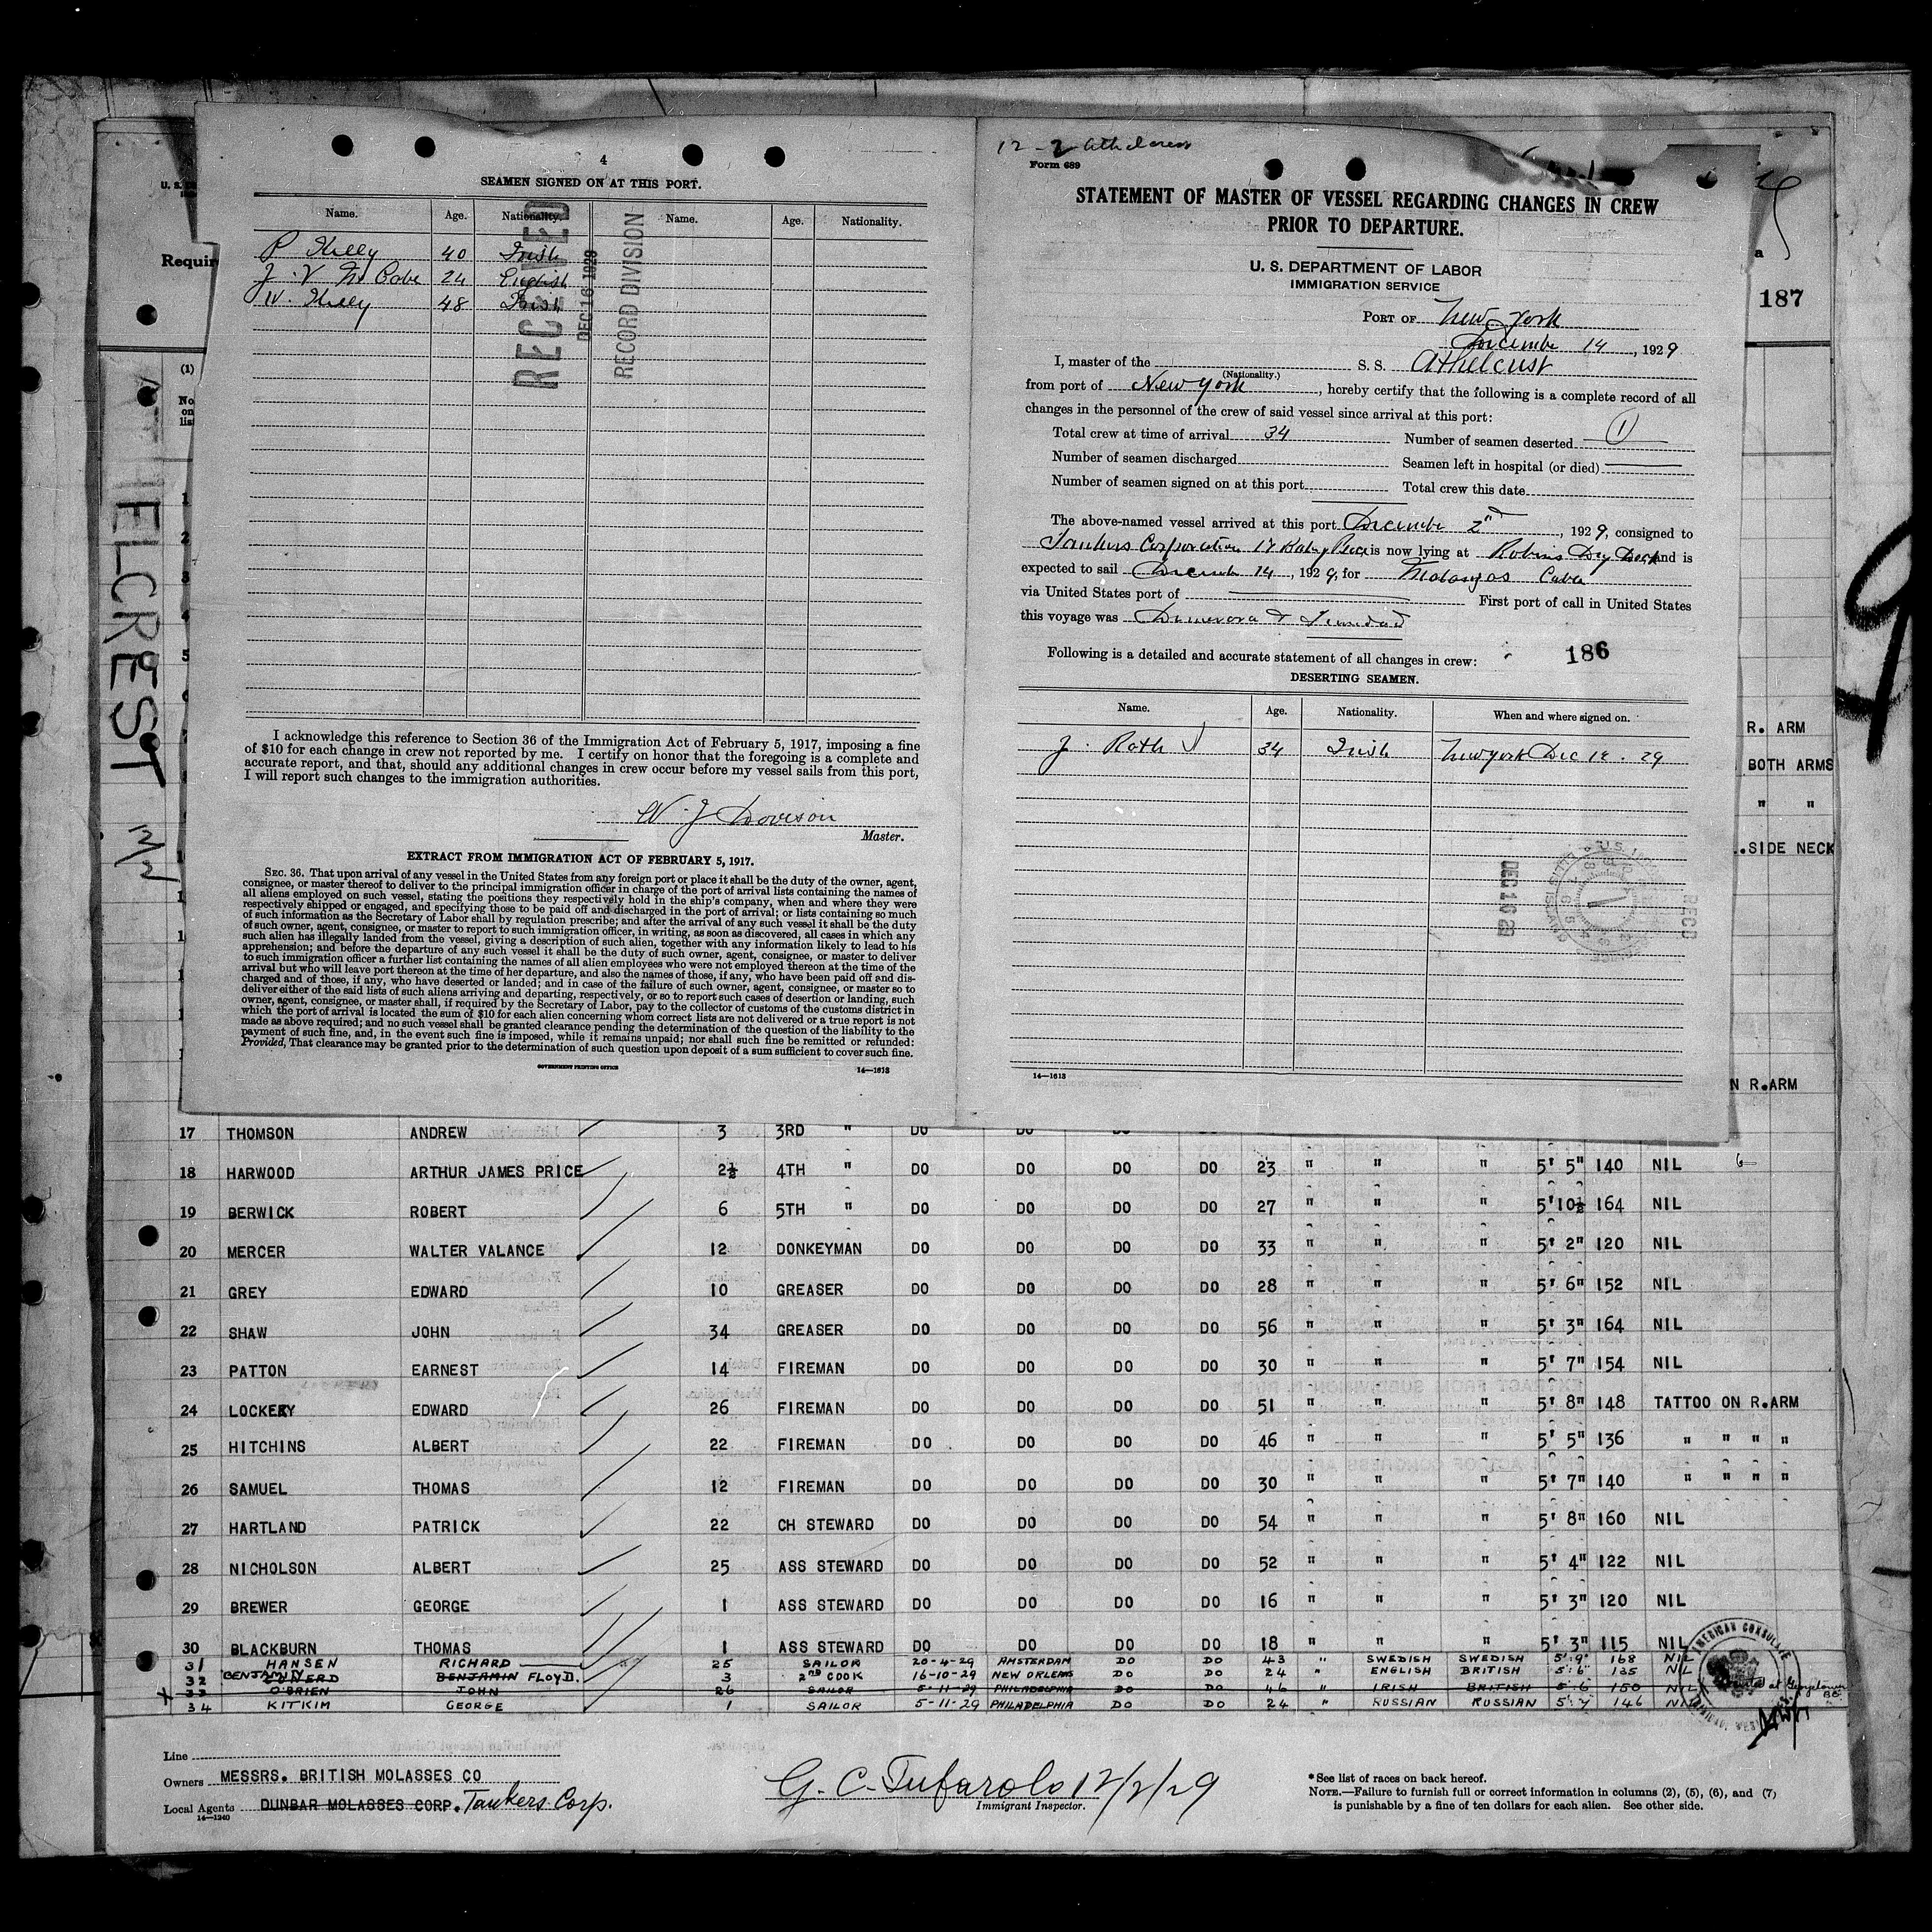 4
SEAMEN SIGNED ON AT THIS PORT.
Name. Age. Nationality. Name. Age. Nationality.
P Kelly 40 Irish
J. V Mc Cabe 24 English
W. Kelly 48 Irish
RECEIVED
DEC 16 1929
RECORD DIVISION
I acknowledge this reference to Section 36 of the Immigration Act of February 5, 1917, imposing a fine
of $10 for each change in crew not reported by me. I certify on honor that the foregoing is a complete and
accurate report, and that, should any additional changes in crew occur before my vessel sails from this port,
I will report such changes to the immigration authorities.
W. J Davison
Master.
EXTRACT FROM IMMIGRATION ACT OF FEBRUARY 5, 1917.
SEC. 36. That upon arrival of any vessel in the United States from any foreign port or place it shall be the duty of the owner, agent,
consignee, or master thereof to deliver to the principal immigration officer in charge of the port of arrival lists containing the names of
all aliens employed on such vessel, stating the positions they respectively hold in the ship's company, when and where they were
respectively shipped or engaged, and specifying those to be paid off and discharged in the port of arrival; or lists containing so much
of such information as the Secretary of Labor shall by regulation prescribe; and after the arrival of any such vessel it shall be the duty
of such owner, agent, consignee, or master to report to such immigration officer, in writing, as soon as discovered, all cases in which any
such alien has illegally landed from the vessel, giving a description of such alien, together with any information likely to lead to his
apprehension; and before the departure of any such vessel it shall be the duty of such owner, agent, consignee, or master to deliver
to such immigration officer a further list containing the names of all alien employees who were not employed thereon at the time of the
arrival but who will leave port thereon at the time of her departure, and also the names of those, if any, who have been paid off and dis-
charged and of those, if any, who have deserted or landed; and in case of the failure of such owner, agent, consignee, or master so to
deliver either of the said lists of such aliens arriving and departing, respectively, or so to report such cases of desertion or landing, such
owner, agent, consignee, or master shall, if required by the Secretary of Labor, pay to the collector of customs of the customs district in
which the port of arrival is located the sum of $10 for each alien concerning whom correct lists are not delivered or a true report is not
made as above required; and no such vessel shall be granted clearance pending the determination of the question of the liability to the
payment of such fine, and, in the event such fine is imposed, while it remains unpaid; nor shall such fine be remitted or refunded:
Provided, That clearance may be granted prior to the determination of such question upon deposit of a sum sufficient to cover such fine.
GOVERNMENT PRINTING OFFICE 14—1613
12-2 Athelcrest
Form 689
STATEMENT OF MASTER OF VESSEL REGARDING CHANGES IN CREW
PRIOR TO DEPARTURE.
U. S. DEPARTMENT OF LABOR
IMMIGRATION SERVICE
PORT OF New York
December 14, 1929
I, master of the S. S. Athelcrest
(Nationality.)
from port of New York, hereby certify that the following is a complete record of all
changes in the personnel of the crew of said vessel since arrival at this port:
Total crew at time of arrival 34 Number of seamen deserted 1
Number of seamen discharged Seamen left in hospital (or died)
Number of seamen signed on at this port Total crew this date
The above-named vessel arrived at this port December 2nd, 1929, consigned to
Tankers Corporation 17 Battery Place is now lying at Robins Dry Dock and is
expected to sail December 14, 1929, for Matanzas Cuba
via United States port of First port of call in United States
this voyage was Demerara & Trinidad
Following is a detailed and accurate statement of all changes in crew: 186
DESERTING SEAMEN.
Name. Age. Nationality. When and where signed on.
J. Roth 34 Irish New York Dec 12. 29
DEC 16 29
RECD
14—1613
U. S.
Requir
187
(1)
No
on
lis
HELCREST
12/2
R. ARM
BOTH ARMS
" "
.SIDE NECK
N R.ARM
17 THOMSON ANDREW 3 3RD " DO DO
18 HARWOOD ARTHUR JAMES PRICE 2½ 4TH " DO DO DO DO 23 " " " 5' 5" 140 NIL
19 BERWICK ROBERT 6 5TH " DO DO DO DO 27 " " " 5'10½ 164 NIL
20 MERCER WALTER VALANCE 12 DONKEYMAN DO DO DO DO 33 " " " 5' 2" 120 NIL
21 GREY EDWARD 10 GREASER DO DO DO DO 28 " " " 5' 6" 152 NIL
22 SHAW JOHN 34 GREASER DO DO DO DO 56 " " " 5' 3" 164 NIL
23 PATTON EARNEST 14 FIREMAN DO DO DO DO 30 " " " 5' 7" 154 NIL
24 LOCKERY EDWARD 26 FIREMAN DO DO DO DO 51 " " " 5' 8" 148 TATTOO ON R.ARM
25 HITCHINS ALBERT 22 FIREMAN DO DO DO DO 46 " " " 5' 5" 136 " " " "
26 SAMUEL THOMAS 12 FIREMAN DO DO DO DO 30 " " " 5' 7" 140 " " " "
27 HARTLAND PATRICK 22 CH STEWARD DO DO DO DO 54 " " " 5' 8" 160 NIL
28 NICHOLSON ALBERT 25 ASS STEWARD DO DO DO DO 52 " " " 5' 4" 122 NIL
29 BREWER GEORGE 1 ASS STEWARD DO DO DO DO 16 " " " 5' 3" 120 NIL
30 BLACKBURN THOMAS 1 ASS STEWARD DO DO DO DO 18 " " " 5' 3" 115 NIL
31 HANSEN RICHARD 25 SAILOR 20-4-29 AMSTERDAM DO DO 43 " SWEDISH SWEDISH 5'.9" 168 NIL
32 BENJAMIN BENJAMIN FLOYD. 3 2ND COOK 16-10-29 NEW ORLEANS DO DO 24 " ENGLISH BRITISH 5' 6" 135 NIL
33 O'BRIEN JOHN 26 SAILOR 5-11-29 PHILADELPHIA DO DO 46 " IRISH BRITISH 5' 6 150 NIL at Georgetown
34 KITKIM GEORGE 1 SAILOR 5-11-29 PHILADELPHIA DO DO 24 " RUSSIAN RUSSIAN 5'.7 146 NIL
AMERICAN CONSULATE
Line
Owners MESSRS. BRITISH MOLASSES CO
Local Agents DUNBAR MOLASSES CORP. Tankers Corp.
14—1240
G. C. Tufarolo 12/2/29
Immigrant Inspector.
*See list of races on back hereof.
NOTE.—Failure to furnish full or correct information in columns (2), (5), (6), and (7)
is punishable by a fine of ten dollars for each alien. See other side.